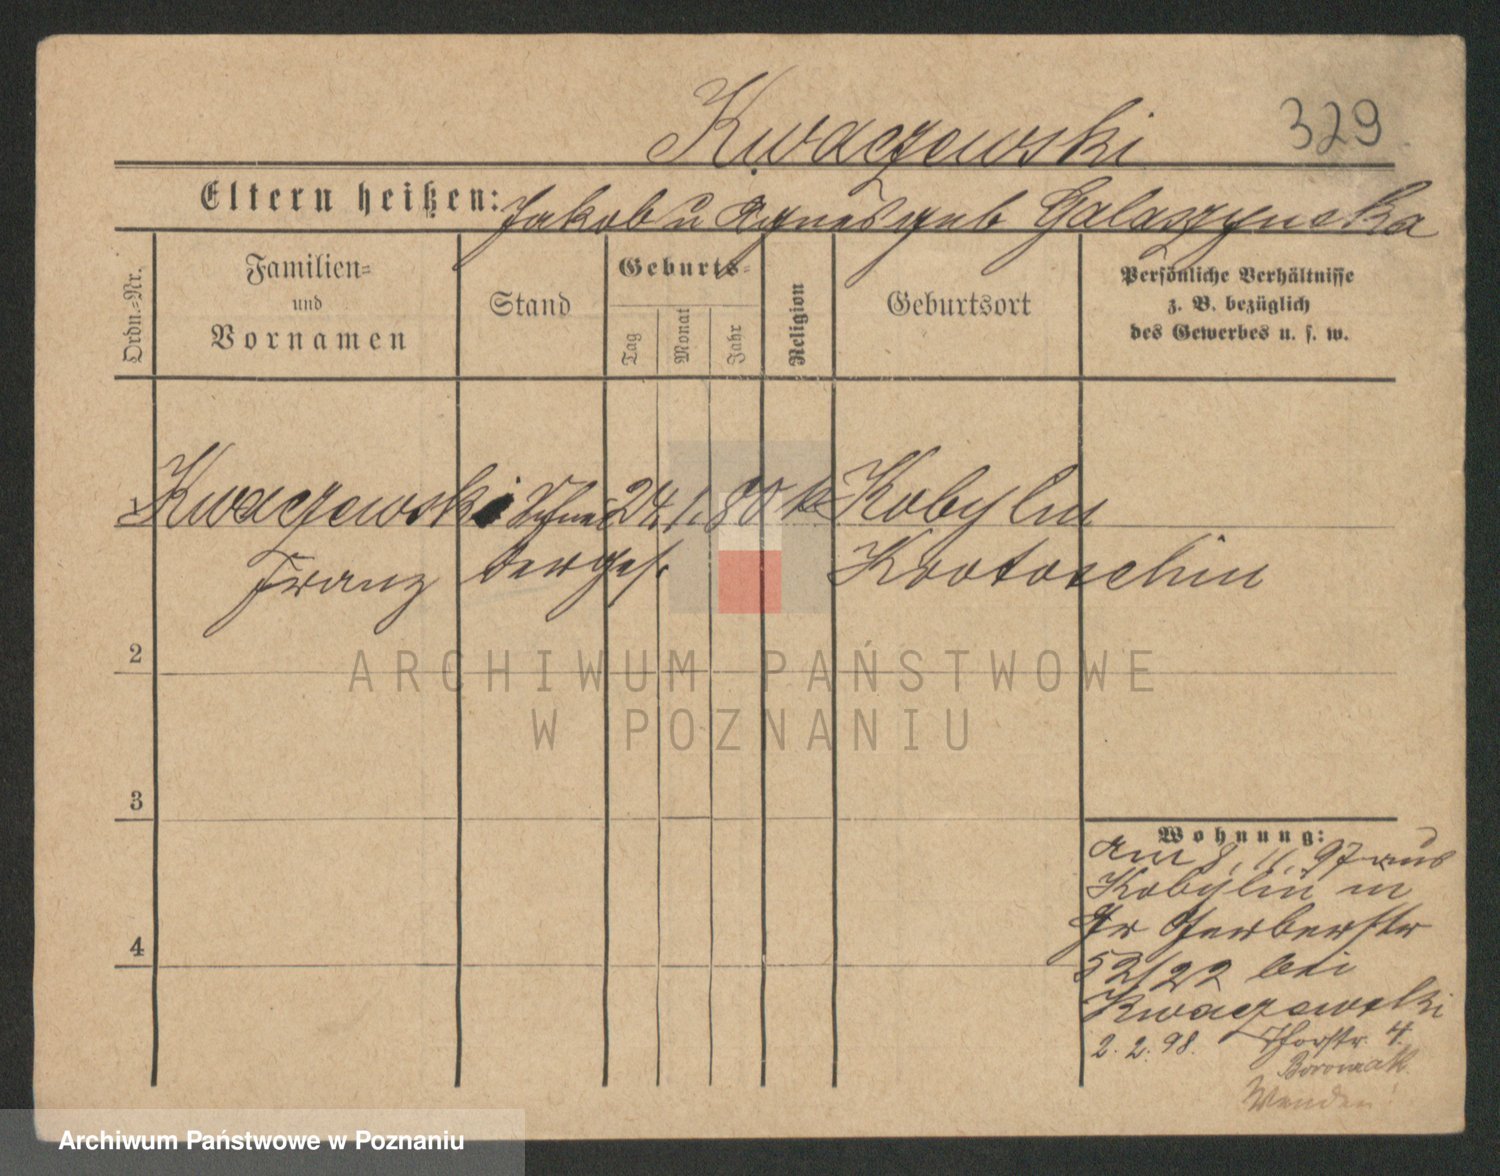 Kwaczewski 329
Eltern heißen: Jakob u Agnes geb Galazynska
Ordn.-Nr.
Familien-
und
Vornamen
Stand
Geburts-
Tag
Monat
Jahr
Religion
Geburtsort
Persönliche Verhältnisse
z. B. bezüglich
des Gewerbes u. s. w.
1 Kwaczewski Schnei 24. 1. 80 k Kobylin
Franz derges. Krotoschin
2
3
4
ARCHIWUM PAŃSTWOWE
W POZNANIU
Wohnung:
am 8. 11. 97 aus
Kobylin in
Gr Gerberstr
52/22 bei
Kwaczewski
2. 2. 98. Thorstr. 4.
Boromak
Archiwum Państwowe w Poznaniu